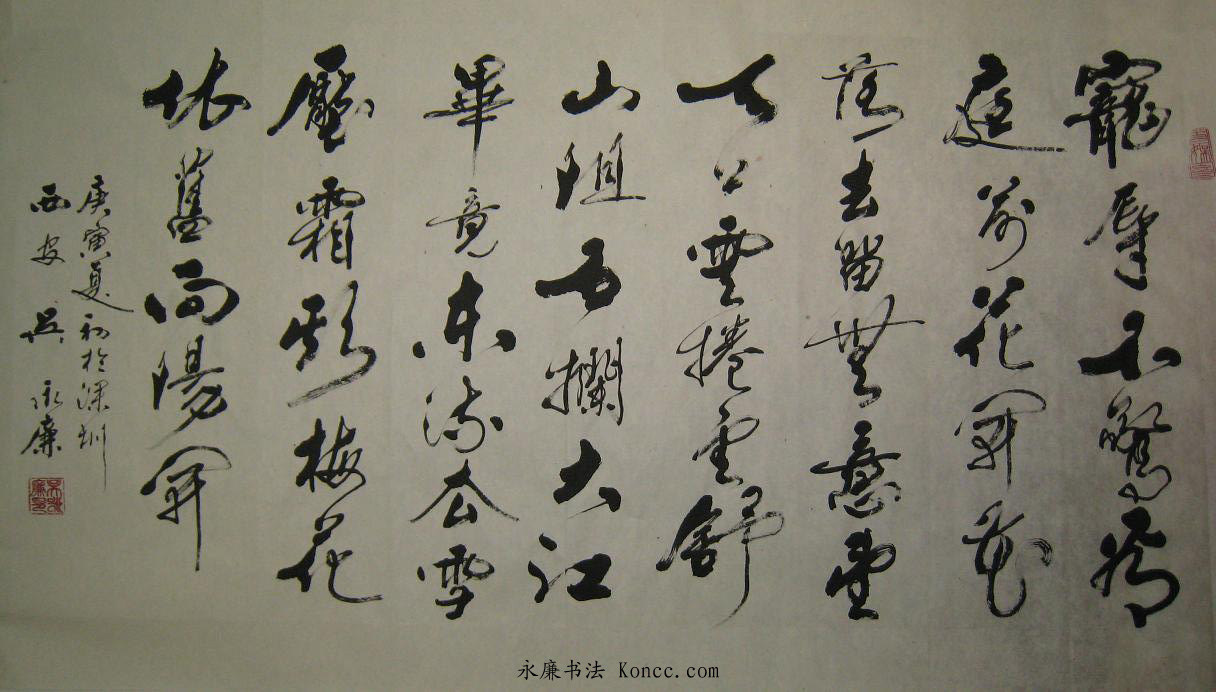 寵辱不驚看
庭前花開花
落去留無意望
天上雲捲雲舒
山阻石攔大江
畢竟東流去雪
壓霜欺梅花
依舊向陽開
庚寅夏初於深圳
西安吳永廉
永廉书法 Koncc.com